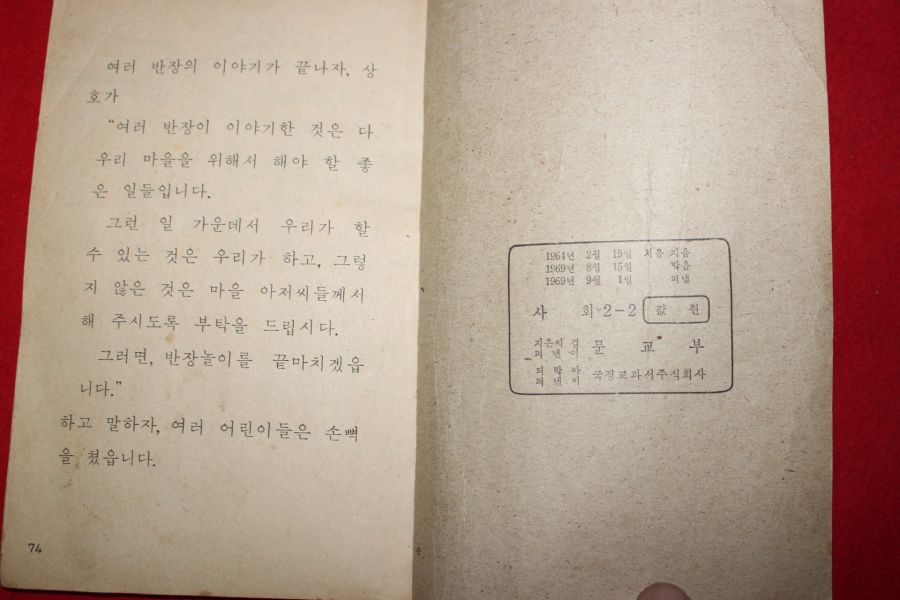 여러 반장의 이야기가 끝나자, 상
호가
“여러 반장이 이야기한 것은 다
우리 마을을 위해서 해야 할 좋
은 일들입니다.
그런 일 가운데서 우리가 할
수 있는 것은 우리가 하고, 그렇
지 않은 것은 마을 아저씨들께서
해 주시도록 부탁을 드립시다.
그러면, 반장놀이를 끝마치겠읍
니다.”
하고 말하자, 여러 어린이들은 손뼉
을 쳤읍니다.
74
1964년 2월 15일 처음 지음
1969년 8월 15일 박음
1969년 9월 1일 펴냄
사 회 2-2 값 원
지은이 겸
펴낸이 문 교 부
되박아
펴낸이 국정교과서주식회사